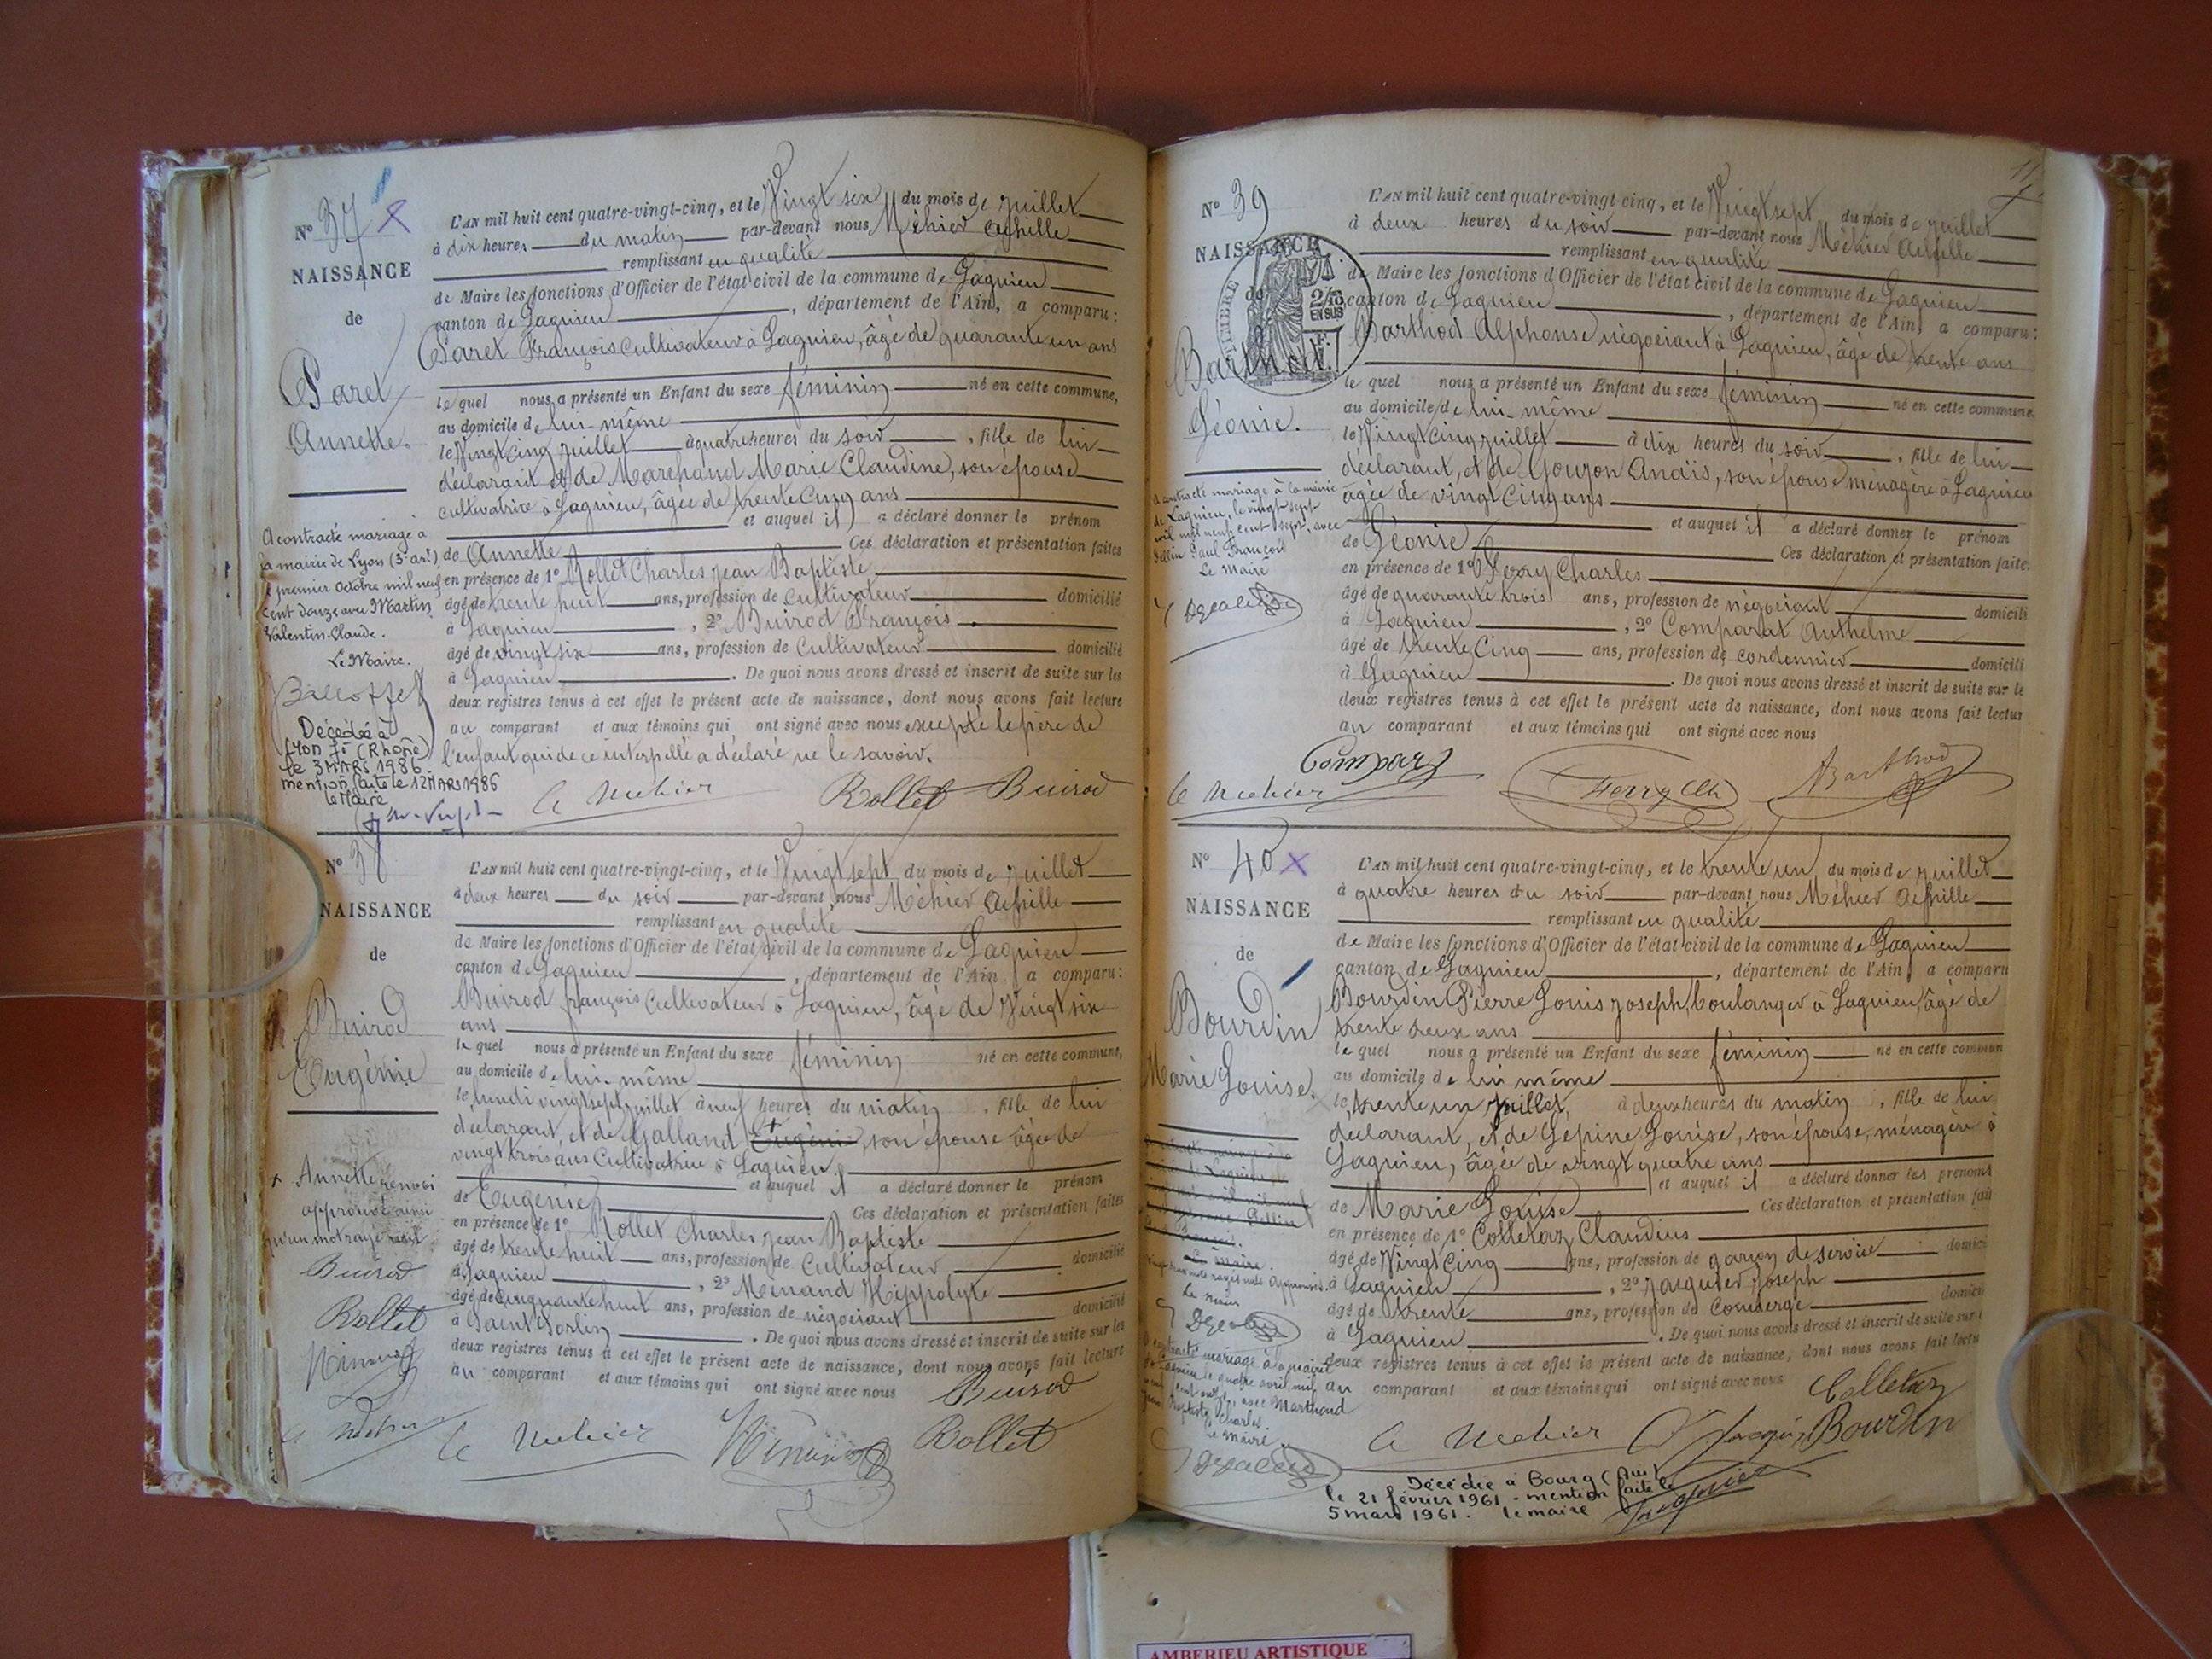 N° 37 X
NAISSANCE
de
Paret
Annette.
A contracté mariage à
la mairie de Lyon (3e arrt)
le premier Octobre mil neuf
cent douze avec Martin
Valentin-Claude.
Le Maire.
Décédée à
Lyon (Rhône)
le 3 MARS 1986
mention faite le 12 MARS 1986
le Maire
L'AN mil huit cent quatre-vingt-cinq, et le Vingt six du mois de juillet
à dix heures du matin par-devant nous Méhier Achille
remplissant en qualité
de Maire les fonctions d'Officier de l'état civil de la commune de Lagnieu
canton de Lagnieu, département de l'Ain, a comparu:
Paret François Cultivateur à Lagnieu, âgé de quarante un ans
le quel nous a présenté un Enfant du sexe féminin né en cette commune,
au domicile de lui même
le Vingt cinq juillet à quatre heures du soir, fille de lui
déclarant et de Marchand Marie Claudine, son épouse
cultivatrice à Lagnieu, âgée de trente cinq ans
et auquel il a déclaré donner le prénom
de Annette Ces déclaration et présentation faites
en présence de 1° Rollet Charles jean Baptiste
âgé de trente huit ans, profession de Cultivateur domicilié
à Lagnieu, 2° Buirod François
âgé de vingt six ans, profession de Cultivateur domicilié
à Lagnieu. De quoi nous avons dressé et inscrit de suite sur les
deux registres tenus à cet effet le présent acte de naissance, dont nous avons fait lecture
au comparant et aux témoins qui ont signé avec nous excepté le père de
l'enfant qui de ce interpellé a déclaré ne le savoir.
A Mehier Rollet Buirod
N° 38
NAISSANCE
de
Buirod
Eugénie
+ Annette renvoi
approuvé ainsi
qu'un mot rayé nul
Buirod
Rollet
L'AN mil huit cent quatre-vingt-cinq, et le Vingt sept du mois de juillet
à deux heures du soir par-devant nous Méhier Achille
remplissant en qualité
de Maire les fonctions d'Officier de l'état civil de la commune de Lagnieu
canton de Lagnieu, département de l'Ain, a comparu:
Buirod françois Cultivateur à Lagnieu, âgé de Vingt six
ans
le quel nous a présenté un Enfant du sexe féminin né en cette commune,
au domicile de lui-même
le lundi vingt sept juillet à neuf heures du matin, fille de lui
déclarant, et de Galland Eugénie +, son épouse âgée de
vingt trois ans Cultivatrice à Lagnieu,
et auquel il a déclaré donner le prénom
de Eugénie Ces déclaration et présentation faites
en présence de 1° Rollet Charles jean Baptiste
âgé de trente huit ans, profession de Cultivateur domicilié
à Lagnieu, 2° Minand Hippolyte
âgé de cinquante huit ans, profession de négociant domicilié
à Saint Sorlin. De quoi nous avons dressé et inscrit de suite sur les
deux registres tenus à cet effet le présent acte de naissance, dont nous avons fait lecture
au comparant et aux témoins qui ont signé avec nous Buirod
A Mehier Minand Rollet
N° 39
NAISSANCE
de
TIMBRE
2/10
EN SUS
Barthod
Léonie.
A contracté mariage à la mairie
de Lagnieu, le vingt-sept
avril mil neuf cent sept, avec
Paul François
Le Maire
L'AN mil huit cent quatre-vingt-cinq, et le Vingt sept du mois de juillet
à deux heures du soir par-devant nous Méhier Achille
remplissant en qualité
de Maire les fonctions d'Officier de l'état civil de la commune de Lagnieu
canton de Lagnieu, département de l'Ain, a comparu:
Barthod Alphonse négociant à Lagnieu, âgé de trente ans
le quel nous a présenté un Enfant du sexe féminin né en cette commune,
au domicile de lui-même
le Vingt cinq juillet à dix heures du soir, fille de lui
déclarant, et de Goujon Anaïs, son épouse ménagère à Lagnieu
âgée de vingt cinq ans
et auquel il a déclaré donner le prénom
de Léonie Ces déclaration et présentation faite
en présence de 1° Ferry Charles
âgé de quarante trois ans, profession de négociant domicili
à Lagnieu, 2° Comparat Anthelme
âgé de trente Cinq ans, profession de cordonnier domicili
à Lagnieu. De quoi nous avons dressé et inscrit de suite sur le
deux registres tenus à cet effet le présent acte de naissance, dont nous avons fait lectur
au comparant et aux témoins qui ont signé avec nous
Comparat
A Mehier Ferry Ch Barthod
N° 40 X
NAISSANCE
de
Bourdin
Marie Louise.
Le Maire
A contracté mariage à la mairie
de Lagnieu le quatre avril mil
neuf cent onze, avec Marthoud
Jean Baptiste Charles.
Le maire
L'AN mil huit cent quatre-vingt-cinq, et le trente un du mois de juillet
à quatre heures du soir par-devant nous Méhier Achille
remplissant en qualité
de Maire les fonctions d'Officier de l'état civil de la commune de Lagnieu
canton de Lagnieu, département de l'Ain, a comparu
Bourdin Pierre Louis joseph, boulanger à Lagnieu, âgé de
trente deux ans
le quel nous a présenté un Enfant du sexe féminin né en cette commun
au domicile de lui même
le trente un juillet, à deux heures du matin, fille de lui
déclarant, et de Lepine Louise, son épouse, ménagère à
Lagnieu, âgée de vingt quatre ans
et auquel il a déclaré donner les prénoms
de Marie Louise Ces déclaration et présentation fait
en présence de 1° Colletaz Claudius
âgé de Vingt Cinq ans, profession de garçon de service domici
à Lagnieu, 2° Jacquier Joseph
âgé de trente ans, profession de Concierge domici
à Lagnieu. De quoi nous avons dressé et inscrit de suite sur l
deux registres tenus à cet effet le présent acte de naissance, dont nous avons fait lectu
au comparant et aux témoins qui ont signé avec nous Colletaz
A Mehier Bourdin
Décédée à Bourg (Ain)
le 21 février 1961 - mention faite le
5 mars 1961. le maire
AMBERIEU ARTISTIQUE